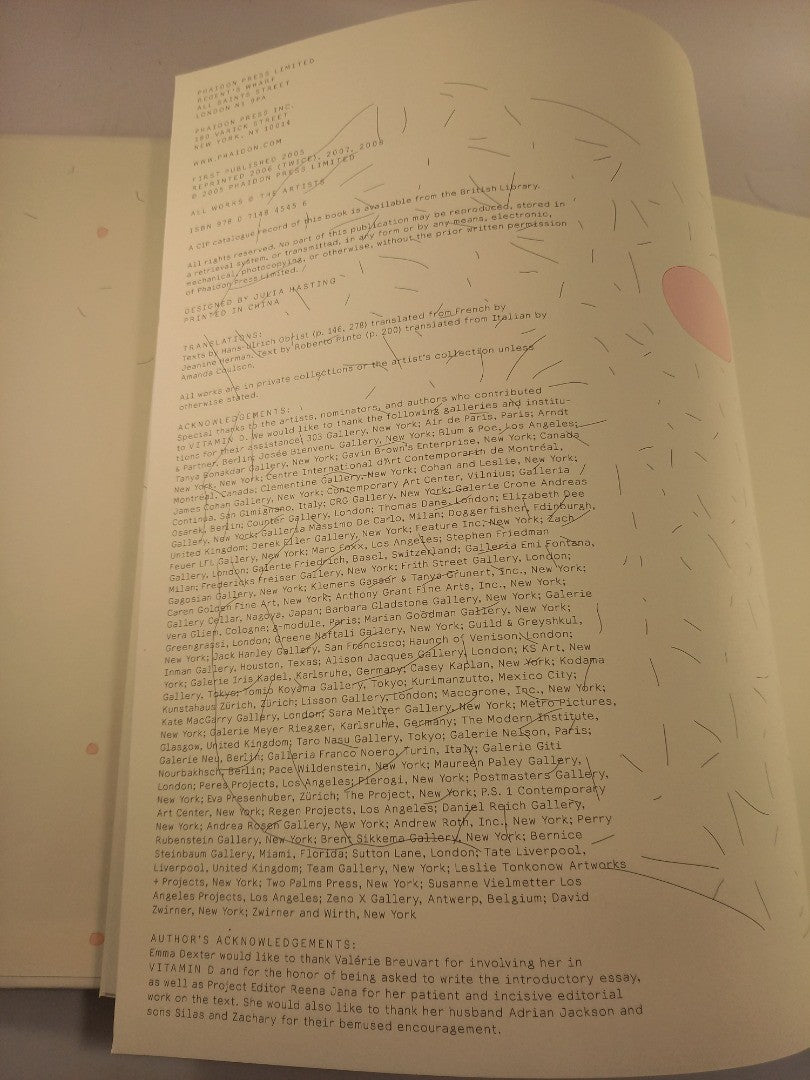 PHAIDON PRESS LIMITED
REGENT'S WHARF
ALL SAINTS STREET
LONDON N1 9PA
PHAIDON PRESS INC.
180 VARICK STREET
NEW YORK, NY 10014
WWW.PHAIDON.COM
FIRST PUBLISHED 2005
REPRINTED 2006 (TWICE), 2007, 2009
© 2005 PHAIDON PRESS LIMITED
ALL WORKS © THE ARTISTS
ISBN 978 0 7148 4545 6
A CIP catalogue record of this book is available from the British Library.
All rights reserved. No part of this publication may be reproduced, stored in
a retrieval system, or transmitted, in any form or by any means, electronic,
mechanical, photocopying, or otherwise, without the prior written permission
of Phaidon Press Limited.
DESIGNED BY JULIA HASTING
PRINTED IN CHINA
TRANSLATIONS:
Texts by Hans-Ulrich Obrist (p. 146, 278) translated from French by
Jeanine Herman. Text by Roberto Pinto (p. 200) translated from Italian by
Amanda Coulson.
All works are in private collections or the artist's collection unless
otherwise stated.
ACKNOWLEDGEMENTS:
Special thanks to the artists, nominators, and authors who contributed
to VITAMIN D. We would like to thank the following galleries and institu-
tions for their assistance: 303 Gallery, New York; Air de Paris, Paris; Arndt
& Partner, Berlin; Josée Bienvenu Gallery, New York; Blum & Poe, Los Angeles;
Tanya Bonakdar Gallery, New York; Gavin Brown's Enterprise, New York; Canada
New York, New York; Centre International d'Art Contemporain de Montréal,
Montréal, Canada; Clementine Gallery, New York; Cohan and Leslie, New York;
James Cohan Gallery, New York; Contemporary Art Center, Vilnius; Galleria
Continua, San Gimignano, Italy; CRG Gallery, New York; Galerie Crone Andreas
Osarek, Berlin; Counter Gallery, London; Thomas Dane, London; Elizabeth Dee
Gallery, New York; Galleria Massimo De Carlo, Milan; Doggerfisher, Edinburgh,
United Kingdom; Derek Eller Gallery, New York; Feature Inc, New York; Zach
Feuer LFL Gallery, New York; Marc Foxx, Los Angeles; Stephen Friedman
Gallery, London; Galerie Friedrich, Basel, Switzerland; Galleria Emi Fontana,
Milan; Fredericks Freiser Gallery, New York; Frith Street Gallery, London;
Gagosian Gallery, New York; Klemens Gasser & Tanya Grunert, Inc., New York;
Caren Golden Fine Art, New York; Anthony Grant Fine Arts, Inc., New York;
Gallery Cellar, Nagoya, Japan; Barbara Gladstone Gallery, New York; Galerie
Vera Gliem, Cologne; g-module, Paris; Marian Goodman Gallery, New York;
Greengrassi, London; Greene Naftali Gallery, New York; Guild & Greyshkul,
New York; Jack Hanley Gallery, San Francisco; Haunch of Venison, London;
Inman Gallery, Houston, Texas; Alison Jacques Gallery, London; KS Art, New
York; Galerie Iris Kadel, Karlsruhe, Germany; Casey Kaplan, New York; Kodama
Gallery, Tokyo; Tomio Koyama Gallery, Tokyo; Kurimanzutto, Mexico City;
Kunsthaus Zürich, Zürich; Lisson Gallery, London; Maccarone, Inc., New York;
Kate MacGarry Gallery, London; Sara Meltzer Gallery, New York; Metro Pictures,
New York; Galerie Meyer Riegger, Karlsruhe, Germany; The Modern Institute,
Glasgow, United Kingdom; Taro Nasu Gallery, Tokyo; Galerie Nelson, Paris;
Galerie Neu, Berlin; Galleria Franco Noero, Turin, Italy; Galerie Giti
Nourbakhsch, Berlin; Pace Wildenstein, New York; Maureen Paley Gallery,
London; Peres Projects, Los Angeles; Pierogi, New York; Postmasters Gallery,
New York; Eva Presenhuber, Zürich; The Project, New York; P.S. 1 Contemporary
Art Center, New York; Reger Projects, Los Angeles; Daniel Reich Gallery,
New York; Andrea Rosen Gallery, New York; Andrew Roth, Inc., New York; Perry
Rubenstein Gallery, New York; Brent Sikkema Gallery, New York; Bernice
Steinbaum Gallery, Miami, Florida; Sutton Lane, London; Tate Liverpool,
Liverpool, United Kingdom; Team Gallery, New York; Leslie Tonkonow Artworks
+ Projects, New York; Two Palms Press, New York; Susanne Vielmetter Los
Angeles Projects, Los Angeles; Zeno X Gallery, Antwerp, Belgium; David
Zwirner, New York; Zwirner and Wirth, New York
AUTHOR'S ACKNOWLEDGEMENTS:
Emma Dexter would like to thank Valérie Breuvart for involving her in
VITAMIN D and for the honor of being asked to write the introductory essay,
as well as Project Editor Reena Jana for her patient and incisive editorial
work on the text. She would also like to thank her husband Adrian Jackson and
sons Silas and Zachary for their bemused encouragement.